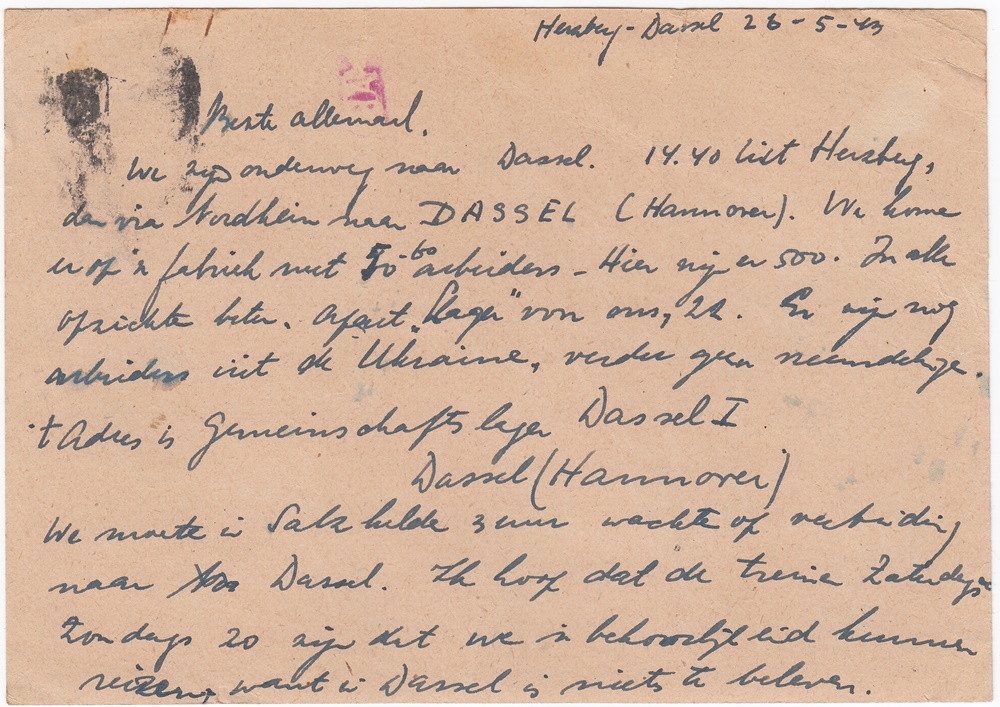 Herzberg - Dassel 26-5-43
Beste allemaal.
We zijn onderweg naar Dassel. 14.40 uit Herzberg,
dan via Nordheim naar DASSEL (Hannover). We kome
er op 'n fabriek met 50-60 arbeiders - Hier zijn er 500. In alle
opzichte beter. Apart „Lager" van ons, 22. Er zijn nog
arbeiders uit de Ukraine, verder geen vreemdelinge.
't Adres is Gemeinschaftslager Dassel I
Dassel (Hannover)
We moete in Salzhelde 3 uur wachte op verbinding
naar Dassel. Ik hoop dat de treine Zaterdags en
Zondags zo zijn dat we in behoorlijke tijd kunnen
reizen, want in Dassel is niets te beleven.